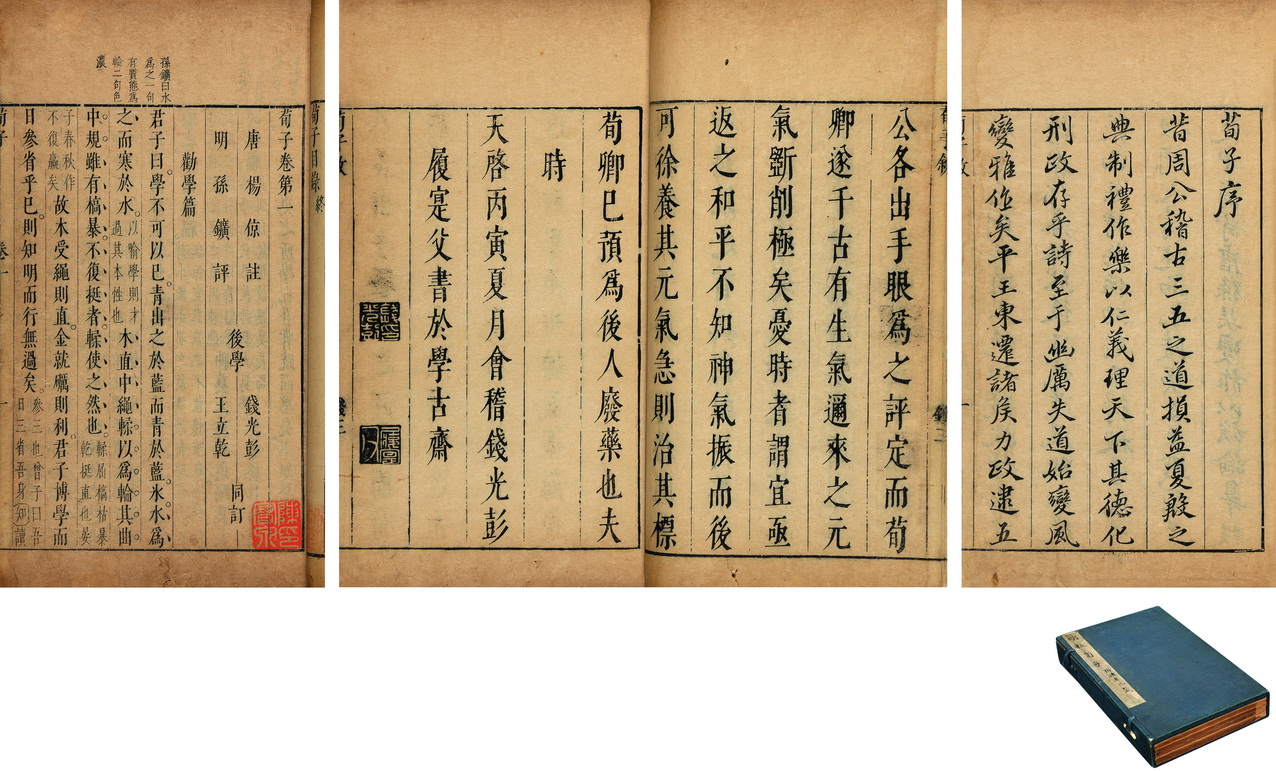 荀子序
昔周公稽古三五之道損益夏殷之
典制禮作樂以仁義理天下其德化
刑政存乎詩至于幽厲失道始變風
變雅作矣平王東遷諸侯力政逮五
公各出手眼爲之評定而荀
卿遂千古有生氣邇來之元
氣斵削極矣憂時者謂宜亟
返之和平不知神氣振而後
可徐養其元氣急則治其標
荀卿已預爲後人廢藥也夫
時
天啓丙寅夏月會稽錢光彭
履寔父書於學古齋
荀子目錄終
荀子卷第一
唐 楊倞 註
明 孫鑛 評
後學 錢光彭
王立乾 同訂
勸學篇
孫鑛曰水
爲之一句
有實態爲
輪二句色
濃
君子曰。學不可以已。青出之於藍而青於藍。冰。水爲
之而寒於水。以喻學則才過其本性也木直中繩。輮以爲輪。其曲
中規。雖有槁暴不復挺者。輮使之然也。輮屈槁枯暴乾挺直也晏
子春秋作不復嬴矣故木受繩則直。金就礪則利。君子博學而
日參省乎已。則知明而行無過矣。參三也曾子曰吾日三省吾身知讀